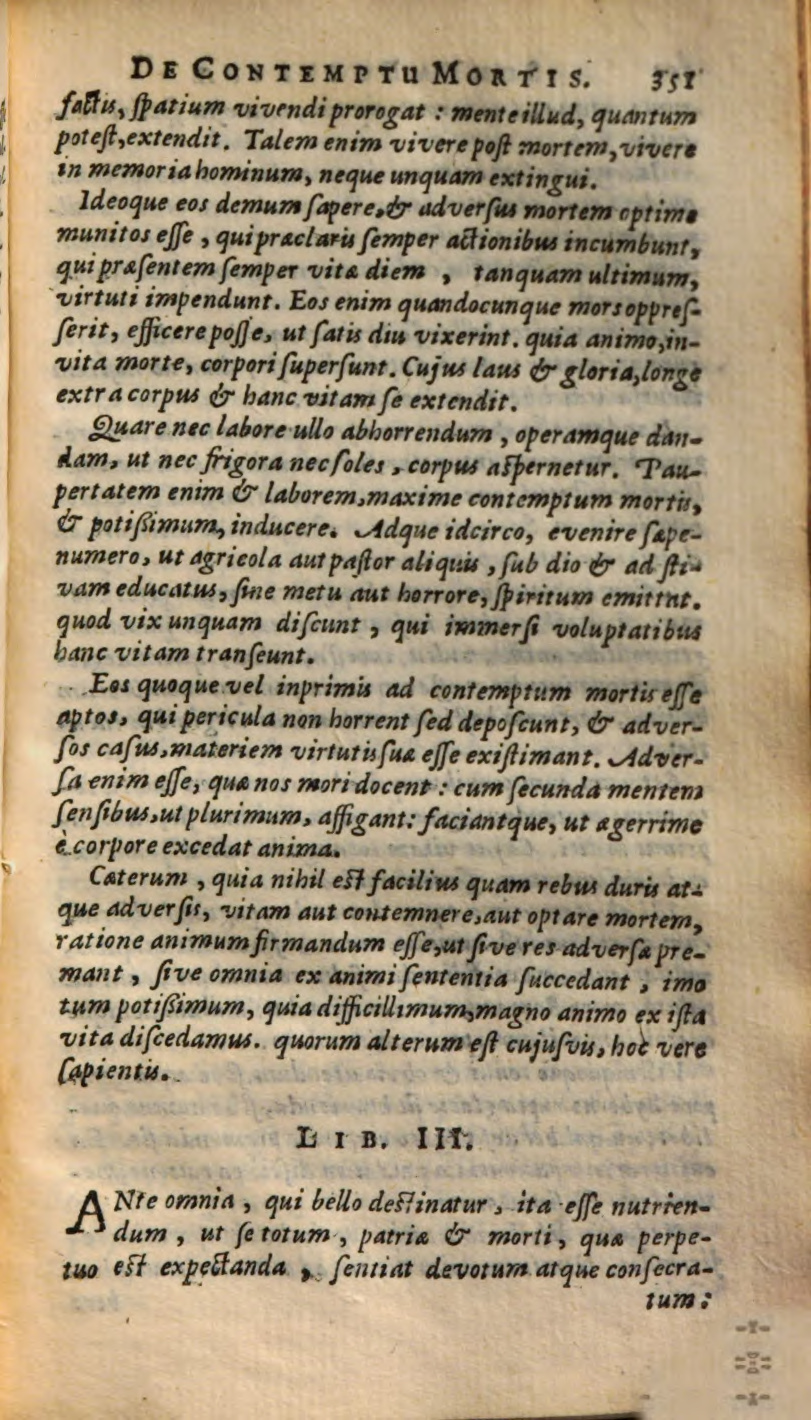 DE CONTEMPTU MORTIS. 351
factis, ſpatium vivendi prorogat : mente illud, quantum
poteſt, extendit. Talem enim vivere poſt mortem, vivere
in memoria hominum, neque unquam extingui.
Ideoque eos demum ſapere, & adverſus mortem optime
munitos eſſe , qui præclaris ſemper actionibus incumbunt,
qui præſentem ſemper vitæ diem , tanquam ultimum,
virtuti impendunt. Eos enim quandocunque mors oppreſ-
ſerit, efficere poſſe, ut ſatis diu vixerint. quia animo, in-
vita morte, corpori ſuperſunt. Cujus laus & gloria, longe
extra corpus & hanc vitam ſe extendit.
Quare nec labore ullo abhorrendum , operamque dan-
dam, ut nec frigora nec ſoles , corpus aſpernetur. Pau-
pertatem enim & laborem, maxime contemptum mortis,
& potiſſimum, inducere. Adque idcirco, evenire ſæpe-
numero, ut agricola aut paſtor aliquis , ſub dio & ad ſti-
vam educatus, ſine metu aut horrore, ſpiritum emittat.
quod vix unquam diſcunt , qui immerſi voluptatibus
hanc vitam tranſeunt.
Eos quoque vel inprimis ad contemptum mortis eſſe
aptos, qui pericula non horrent ſed depoſcunt, & adver-
ſos caſus, materiem virtutis ſuæ eſſe exiſtimant. Adver-
ſa enim eſſe, quæ nos mori docent : cum ſecunda mentem
ſenſibus, ut plurimum, affigant: faciantque, ut ægerrime
è corpore excedat anima.
Cæterum , quia nihil eſt facilius quam rebus duris at-
que adverſis, vitam aut contemnere, aut optare mortem,
ratione animum firmandum eſſe, ut ſive res adverſæ pre-
mant , ſive omnia ex animi ſententia ſuccedant , imo
tum potiſſimum, quia difficillimum, magno animo ex iſta
vita diſcedamus. quorum alterum eſt cujuſvis, hoc vere
ſapientis.
LIB. III.
ANte omnia , qui bello deſtinatur , ita eſſe nutrien-
dum , ut ſe totum , patriæ & morti , quæ perpe-
tuo eſt expectanda , ſentiat devotum atque conſecra-
tum :